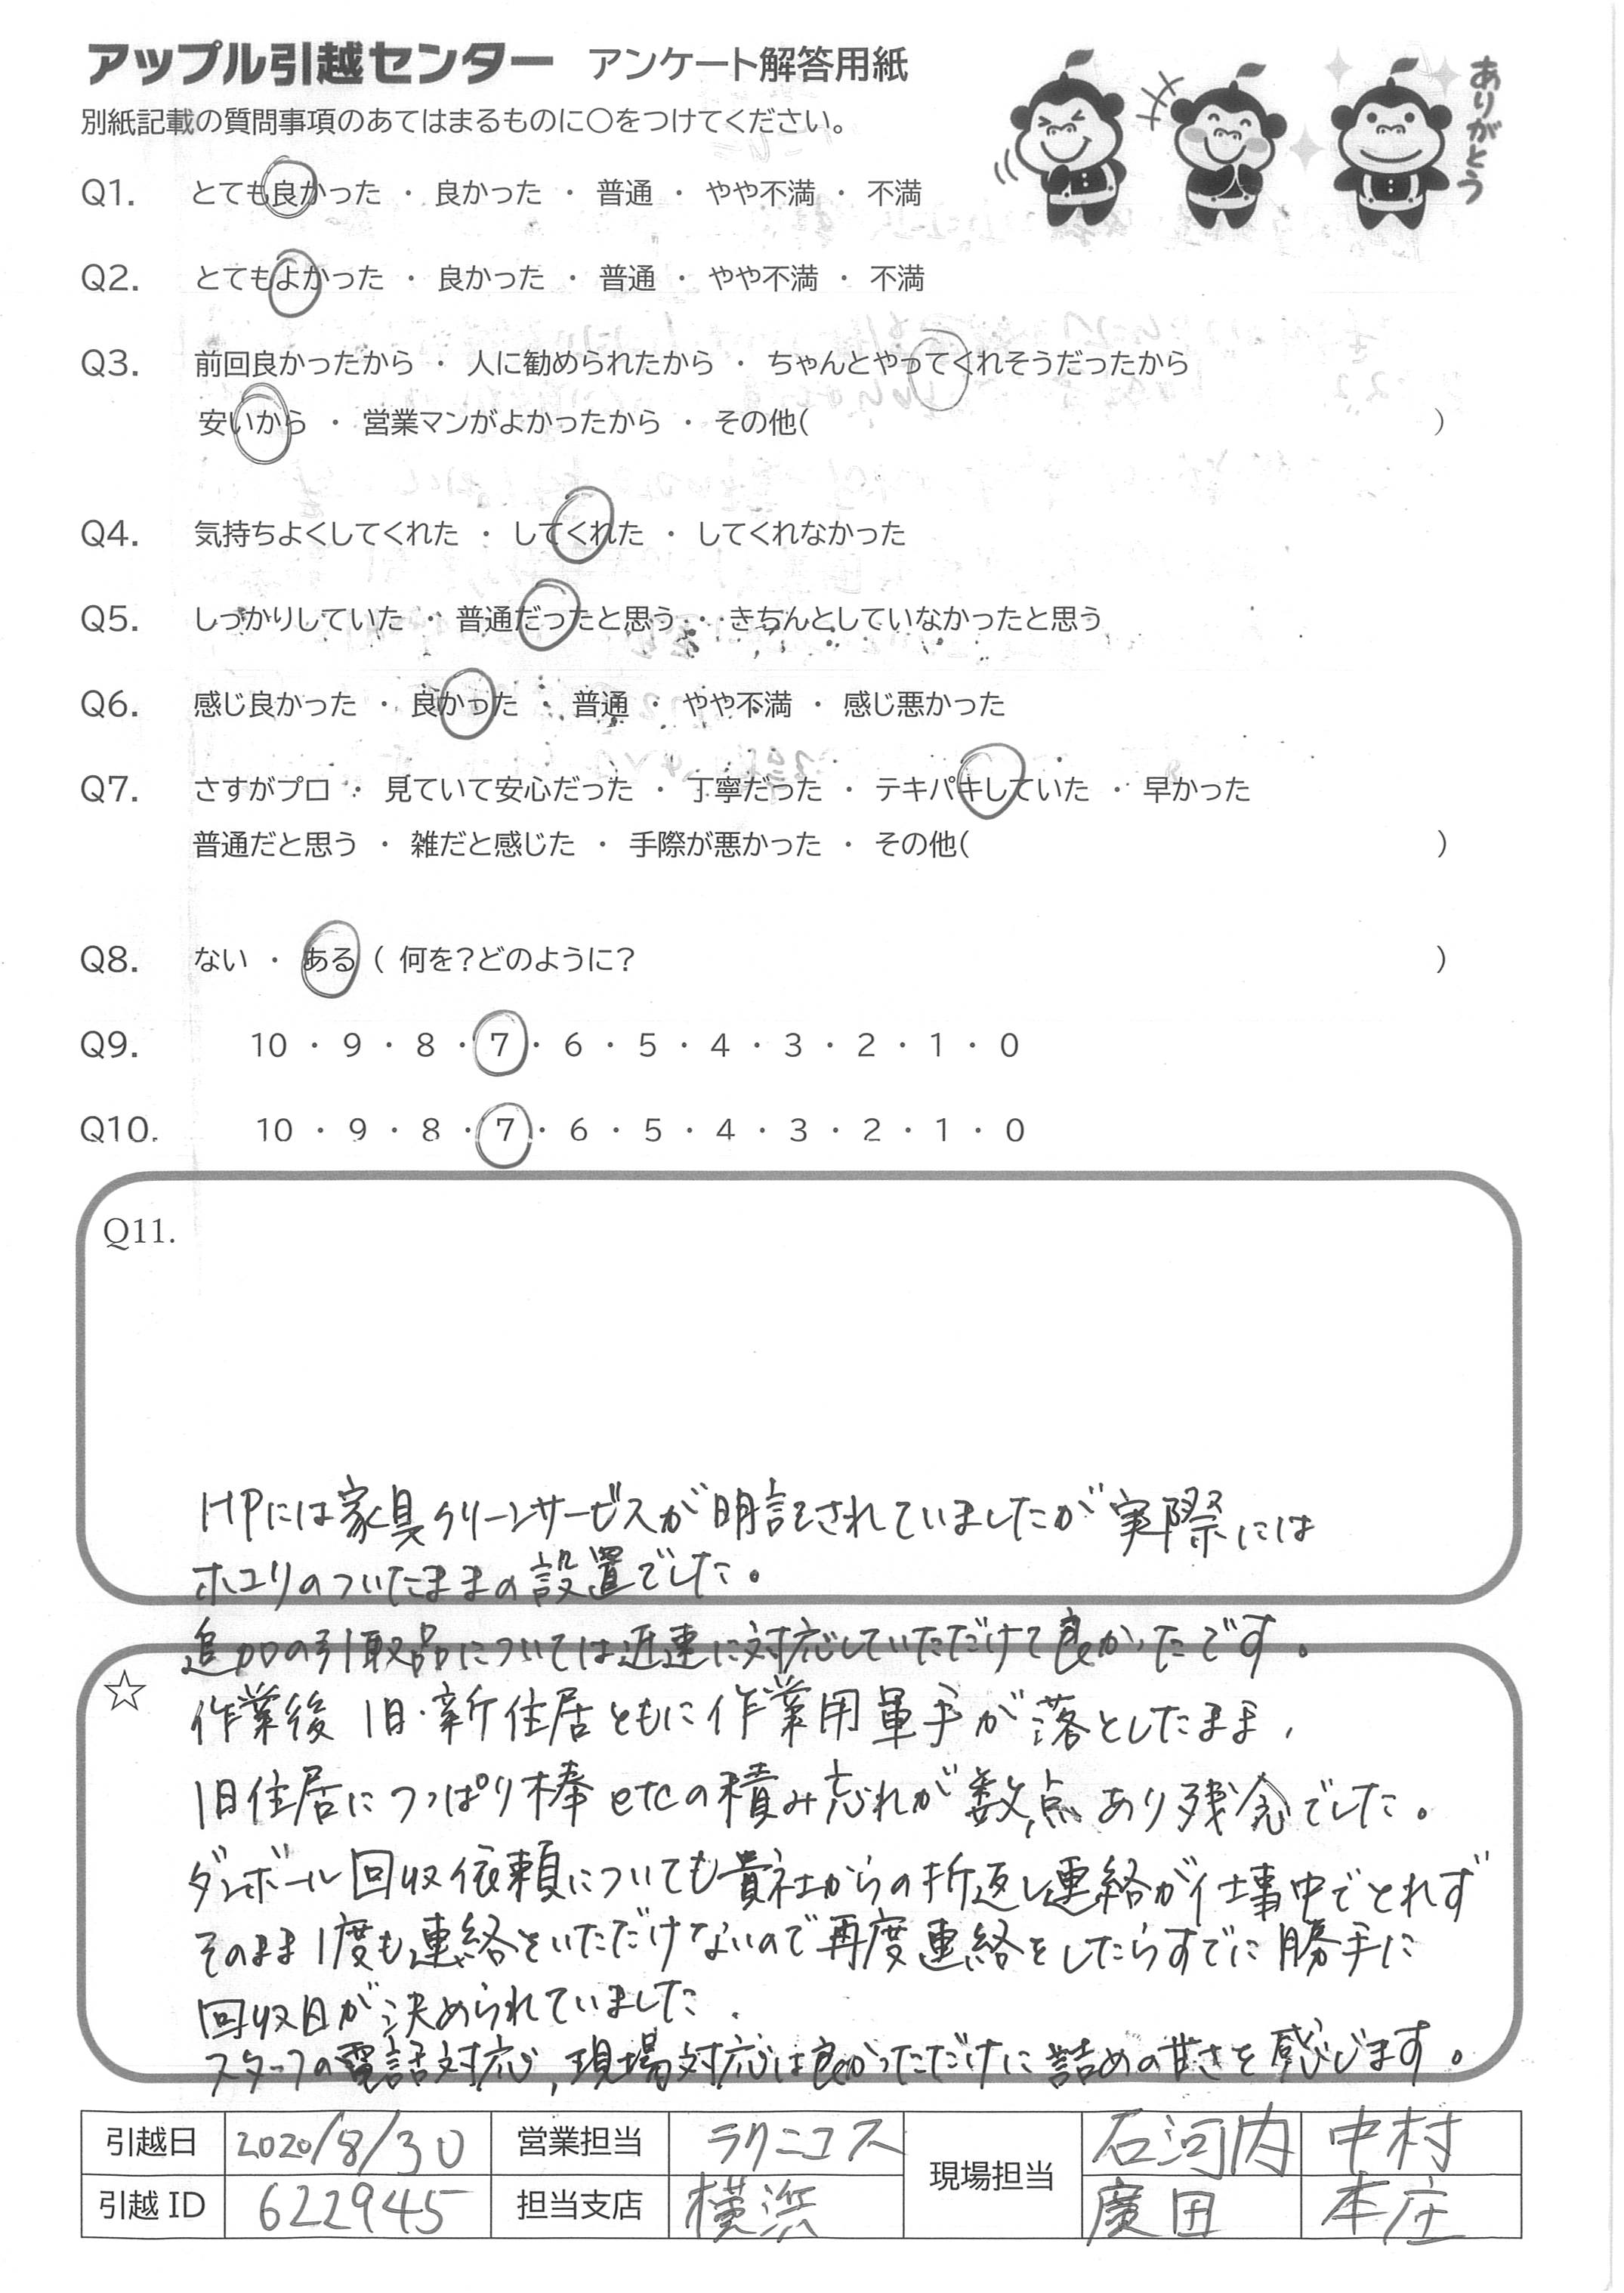 アップル引越センター アンケート解答用紙
ありがとう
別紙記載の質問事項のあてはまるものに○をつけてください。
Q1. とても良かった ・ 良かった ・ 普通 ・ やや不満 ・ 不満
Q2. とてもよかった ・ 良かった ・ 普通 ・ やや不満 ・ 不満
Q3. 前回良かったから ・ 人に勧められたから ・ ちゃんとやってくれそうだったから
安いから ・ 営業マンがよかったから ・ その他( )
Q4. 気持ちよくしてくれた ・ してくれた ・ してくれなかった
Q5. しっかりしていた ・ 普通だったと思う ・ きちんとしていなかったと思う
Q6. 感じ良かった ・ 良かった ・ 普通 ・ やや不満 ・ 感じ悪かった
Q7. さすがプロ ・ 見ていて安心だった ・ 丁寧だった ・ テキパキしていた ・ 早かった
普通だと思う ・ 雑だと感じた ・ 手際が悪かった ・ その他( )
Q8. ない ・ ある ( 何を?どのように? )
Q9. 10 ・ 9 ・ 8 ・ 7 ・ 6 ・ 5 ・ 4 ・ 3 ・ 2 ・ 1 ・ 0
Q10. 10 ・ 9 ・ 8 ・ 7 ・ 6 ・ 5 ・ 4 ・ 3 ・ 2 ・ 1 ・ 0
Q11.
HPには家具クリーンサービスが明記されていましたが実際には
ホコリのついたままの設置でした。
追加の引取品については迅速に対応していただけて良かったです。
☆
作業後 旧・新住居ともに作業用軍手が落としたまま、
旧住居につっぱり棒etcの積み忘れが数点あり残念でした。
ダンボール回収依頼についても貴社からの折返し連絡が仕事中でとれず
そのまま1度も連絡をいただけないので再度連絡をしたらすでに勝手に
回収日が決められていました.
スタッフの電話対応,現場対応は良かっただけに詰めの甘さを感じます。
引越日 2020/8/30 営業担当 ラクニコス 現場担当 石河内 中村
引越ID 622945 担当支店 横浜 廣田 本庄